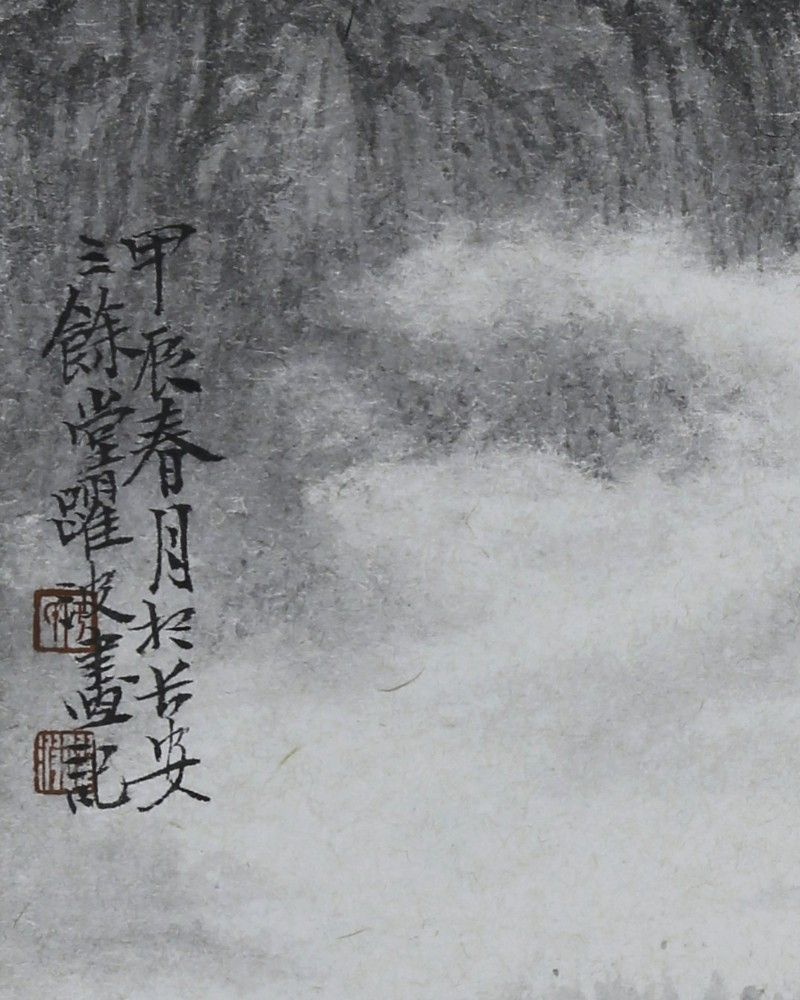 甲辰春月於长安
三餘堂躍波畫記